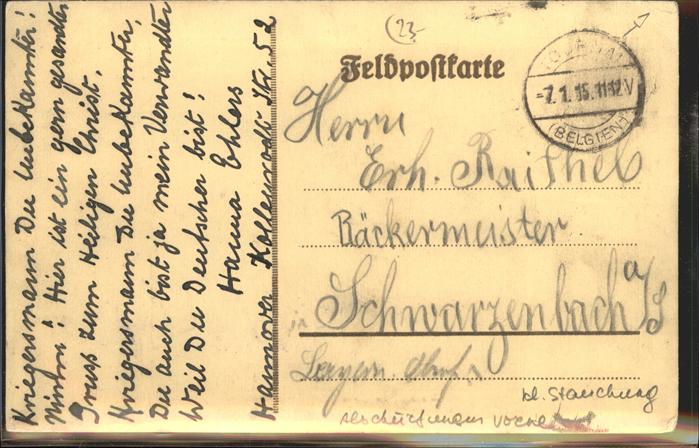 Kriegersmann Du unbekannter!
Nimm! Hier ist ein gern gesendeter
Gruss zum Heiligen Christ.
Kriegersmann Du unbekannter,
Du auch bist ja mein Verwandter
Weil Du Deutscher bist!
Hanna Ehlers
Hannover
23
Feldpostkarte
-7.1.15.11-12V
(BELGIEN)
Herrn
Erh. Raithel
Bäckermeister
in Schwarzenbach a/S
Bayern.
kl. Stauchung
vorne